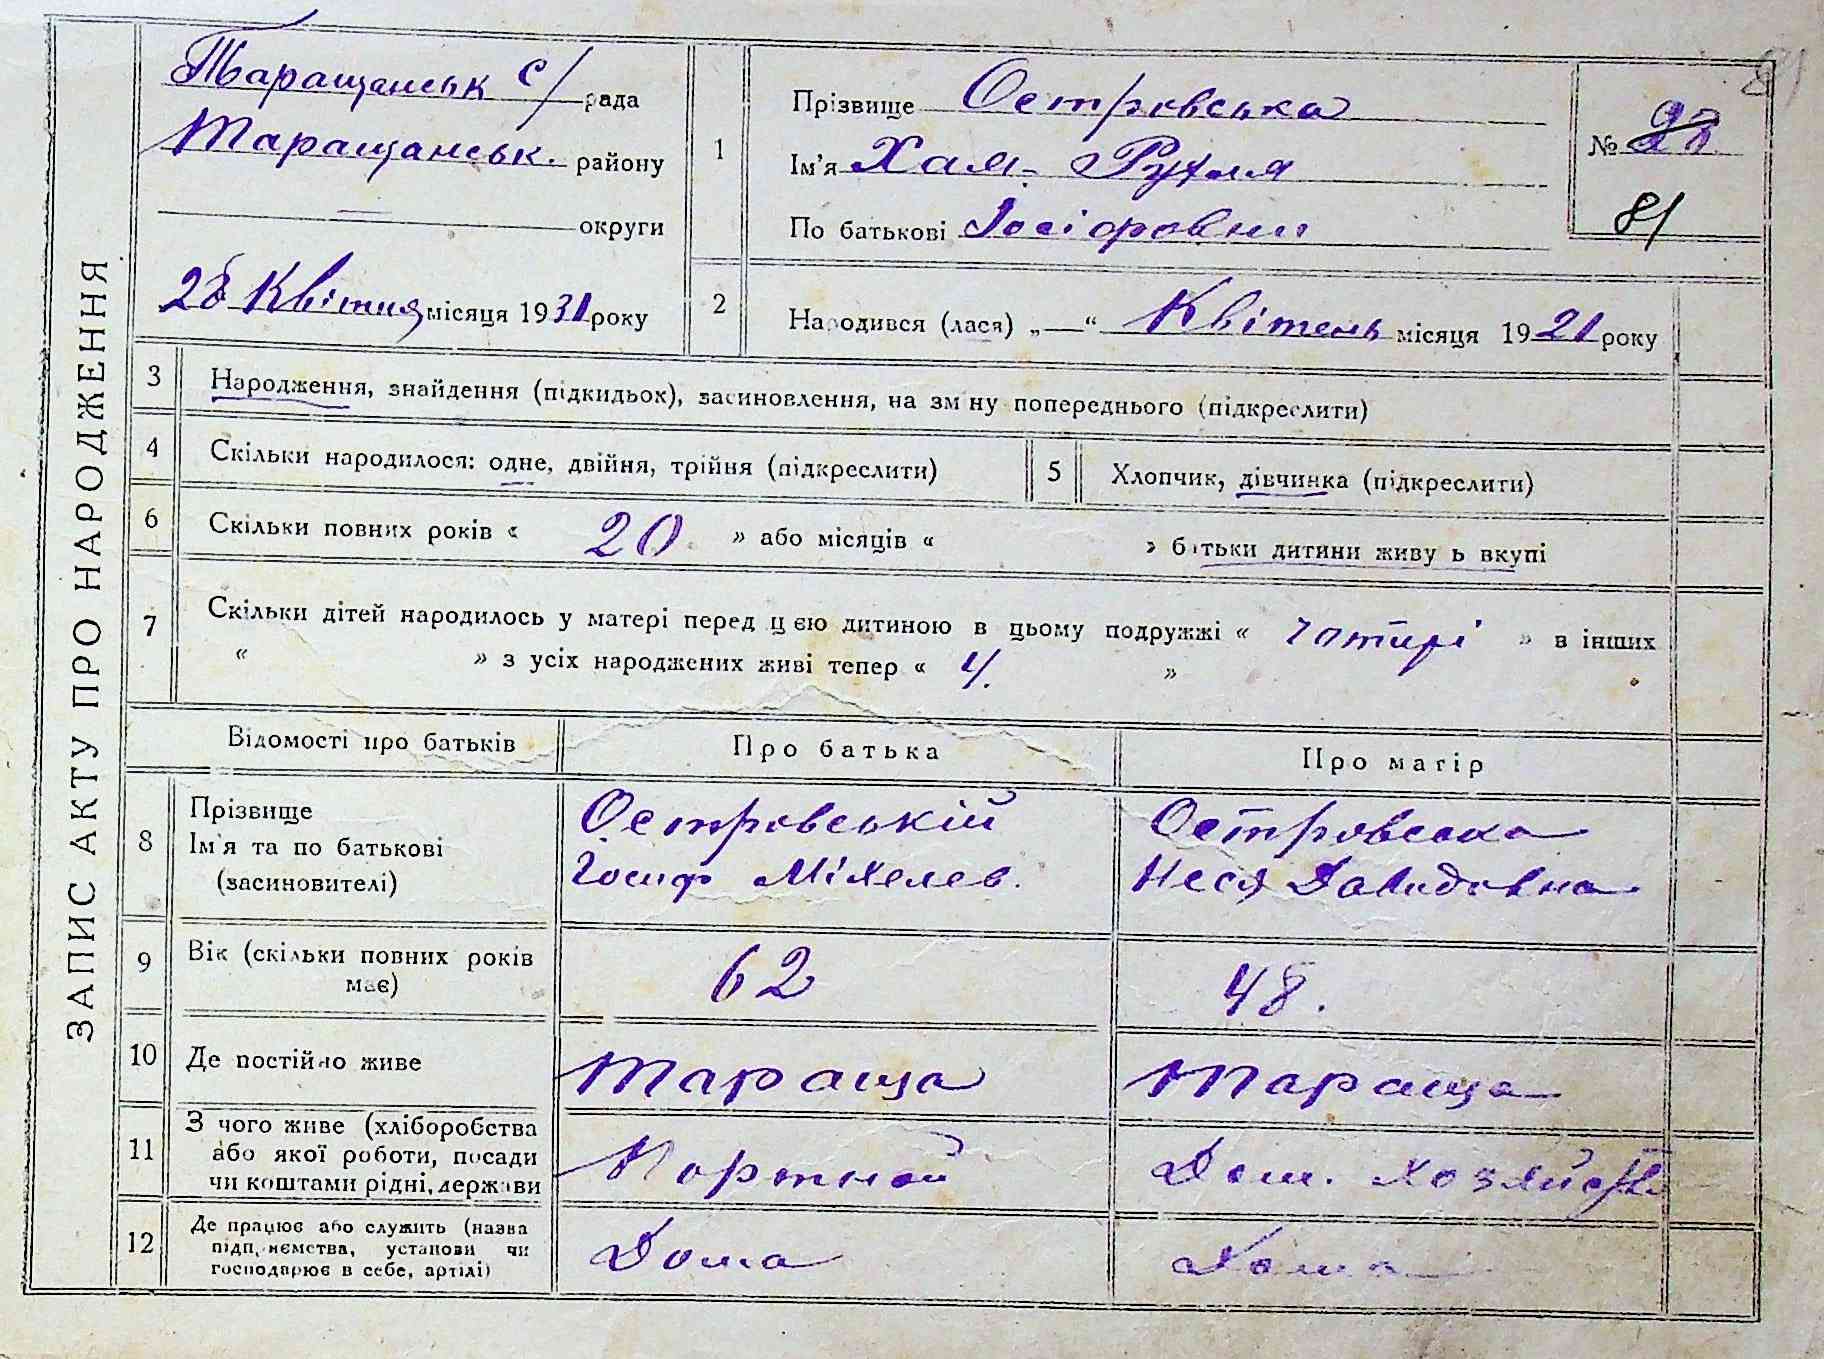 ЗАПИС АКТУ ПРО НАРОДЖЕННЯ
Таращанськ с/рада
Таращанськ. району
— округи
28 Квітня місяця 1931 року
1
Прізвище Островська
Ім'я Хая- Рухля
По батькові Іосіфовни
№ 28
81
2
Народився (лася) „—“ Квітень місяця 1921 року
3
Народження, знайдення (підкидьох), засиновлення, на зміну попереднього (підкреслити)
4
Скільки народилося: одне, двійня, трійня (підкреслити)
5
Хлопчик, дівчинка (підкреслити)
6
Скільки повних років « 20 » або місяців « » батьки дитини живуть вкупі
7
Скільки дітей народилось у матері перед цією дитиною в цьому подружжі « чотирі » в інших
« » з усіх народжених живі тепер « 4. »
Відомості про батьків
Про батька
Про матір
8
Прізвище
Ім'я та по батькові
(засиновителі)
Островській
Іосиф Міхелев.
Островська
Неся Давидовна
9
Вік (скільки повних років
має)
62
48.
10
Де постійно живе
Тараща
Тараща
11
З чого живе (хліборобства
або якої роботи, посади
чи коштами рідні, держави
Портной
Дом. хозяйств.
12
Де працює або служить (назва
підприємства, установи чи
господарює в себе, артілі)
Дома
Дома